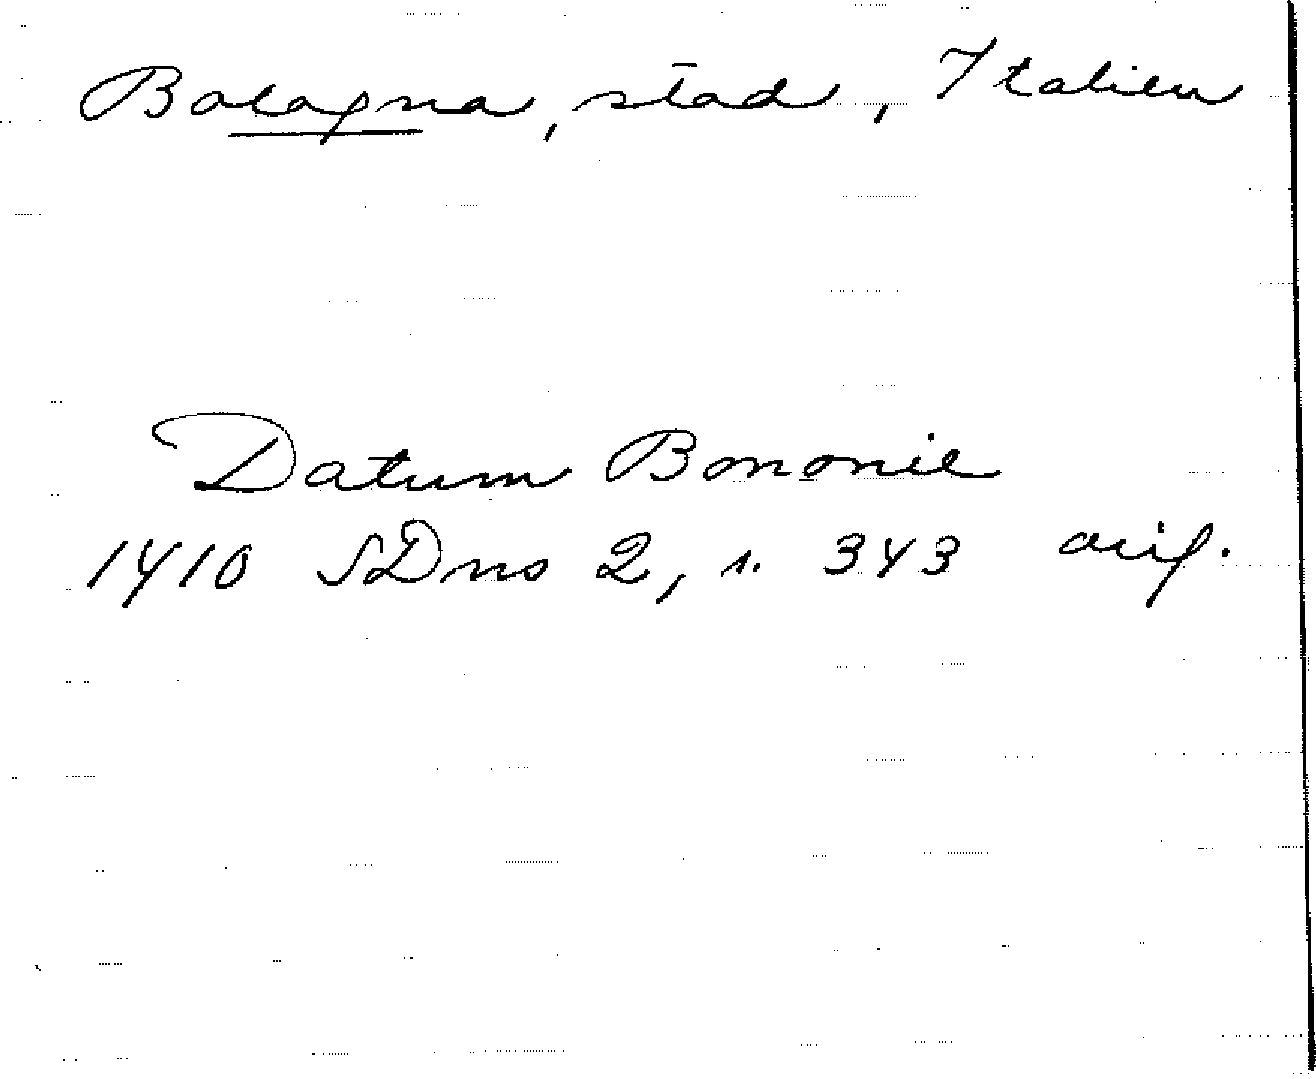 Bologna, stad, Italien
Datum Bononie
1410 SDns 2, s. 343 avs.